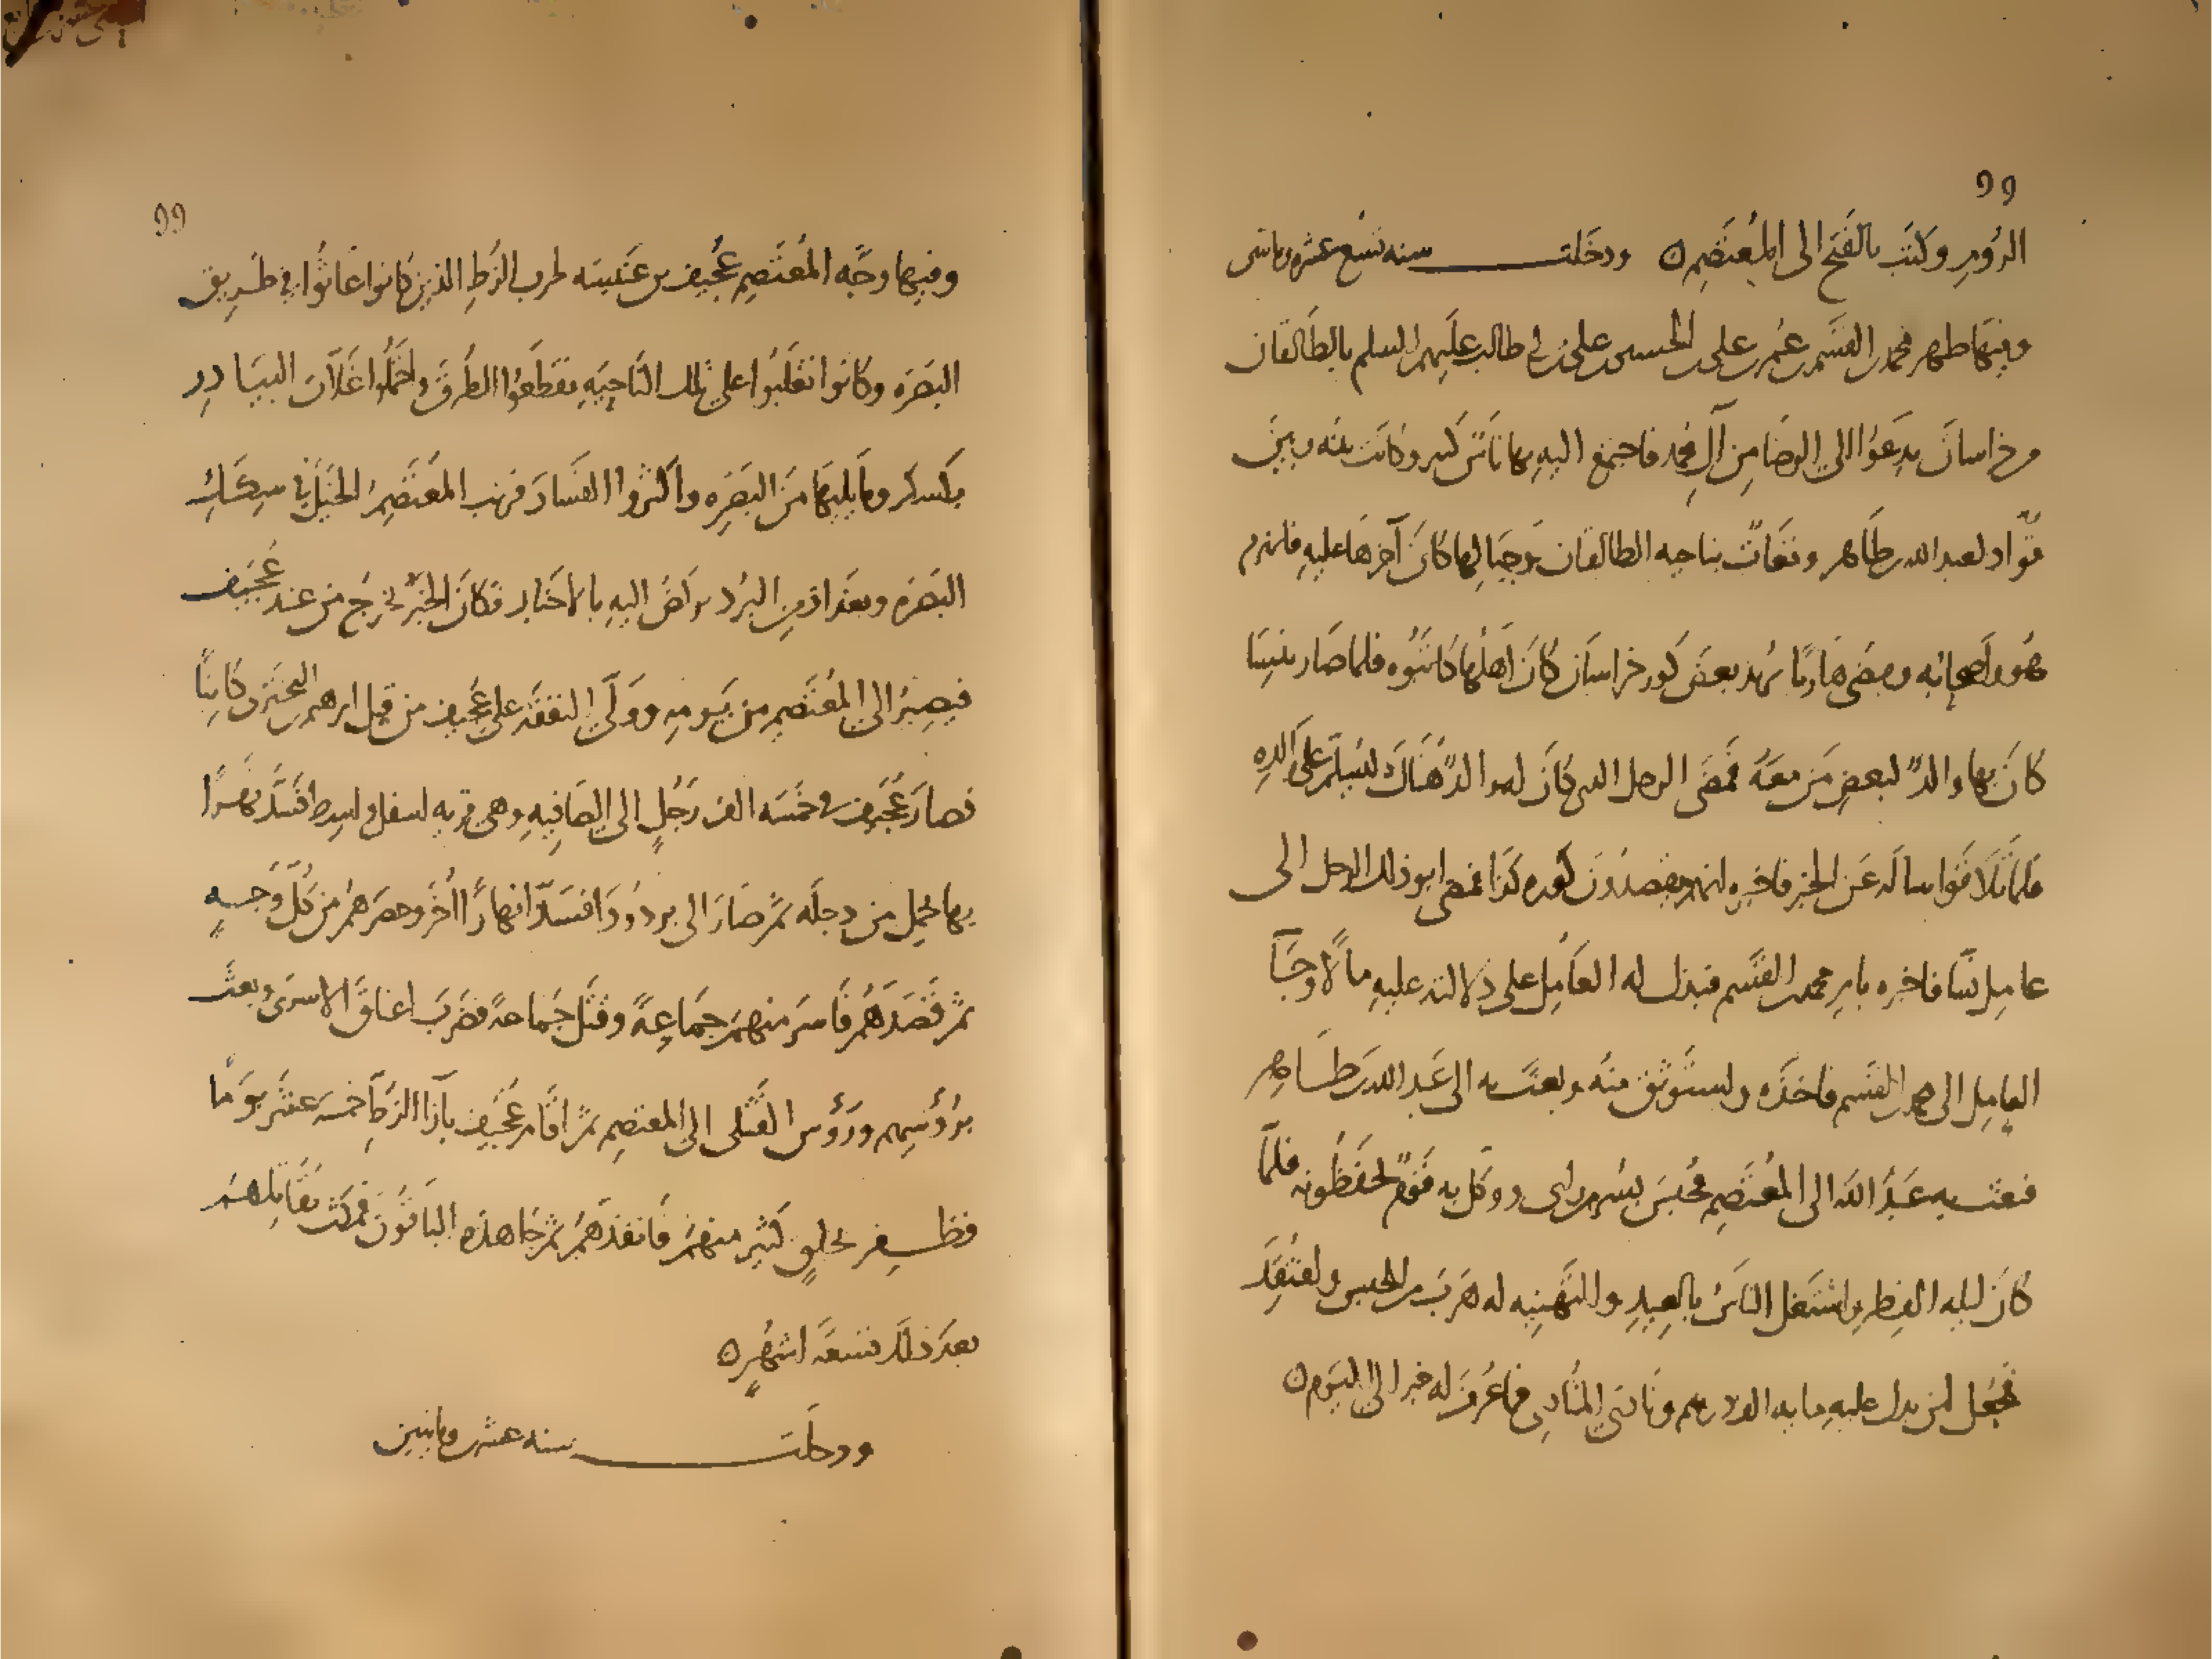 99
الروم وكتب بالفتح الى المعتصم ه ودخلت سنه تسع عشره وماتى
وفيها ظهر محمد بن القسم بن عمر بن على بن الحسين بن على بن ابى طالب عليهم السلم بالطالقان
من خراسان يدعوا الى الرضا من آل محمد فاجتمع اليه بها ناس كثير وكانت بينه وبين
قواد لعبد الله بن طاهر وقعات بناحيه الطالقان وجبالها كان آخرها عليه فانهزم
هو واصحابه ومضى هاربا يريد بعض كور خراسان كان اهلها كاتبوه فلما صار بنسا
كان بها والد لبعض من معه فمضى الرجل الذى كان له والد هناك ليسلم على والده
فلما تلاقوا ساله عن الخبر فاخبره انهم يقصدون كوره كذا فمضى ابو ذلك الرجل الى
عامل نسا فاخبره بامر محمد بن القسم فبذل له العامل على دلالته عليه مالا وجآ
العامل الى محمد بن القسم فاخذه واستوثق منه وبعث به الى عبد الله بن طاهر
فبعث به عبد الله الى المعتصم فحبس بسر من راى ووكل به قوم يحفظونه فلما
كان ليله الفطر واشتغل الناس بالعيد والتهنيه له هرب من الحبس وافتقد
فجعل لمن يدل عليه مايه الف درهم ونادى المنادى فما عرف له خبر الى اليوم ه
99
وفيها وجه المعتصم عجيف بن عنبسه لحرب الزط الذين كانوا عاثوا فى طريق
البصره وكانوا تغلبوا على تلك الناحيه فقطعوا الطرق واحتملوا غلات البيادر
بكسكر وما يليها من البصره واكثروا الفساد فرتب المعتصم الخيل فى سكك
البصره وبغداذ من البرد يركض اليه بالاخبار فكان الخبر يخرج من عند عجيف
فيصير الى المعتصم من يومه وولى النفقه على عجيف من قبل ابرهيم البخترى كاتبا
فصار عجيف فى خمسه الف رجل الى الصافيه وهى قريه اسفل واسط فسد نهرا
بها يحمل من دجله ثم صار الى بردودا فسد انهارا اخر وحصرهم من كل وجه
ثم قصدهم فاسر منهم جماعة وقتل جماعة فضرب اعناق الاسرى وبعث
برؤسهم ورؤس القتلى الى المعتصم ثم اقام عجيف بازا الزط خمسه عشر يوما
فظفر بخلق كثير منهم فانفذهم ثم جاهده الباقون فمكث يقاتلهم
بعد ذلك تسعه اشهر ه
ودخلت سنه عشرين ومايتين